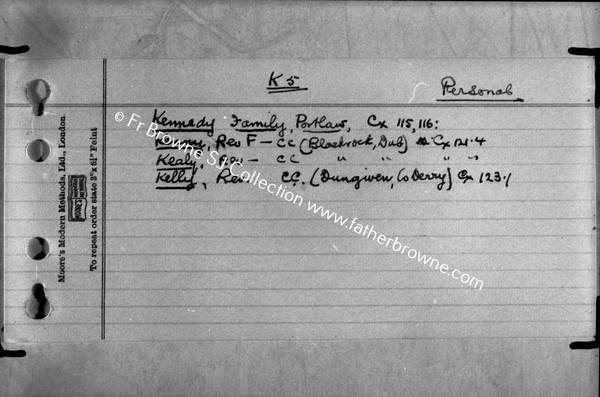 K 5
Personal
Kennedy Family, Portlaw, Cx 115, 116:
Rev F — CC (Blackrock, Dub) Cx 121.4
Kealy, Rev — CC " " " "
Kelly, Rev. CC. (Dungiven, Co Derry) Cx 123.1
© Fr Browne SJ Collection www.fatherbrowne.com
Moore's Modern Methods, Ltd., London.
To repeat order state 3"x 6½" Feint